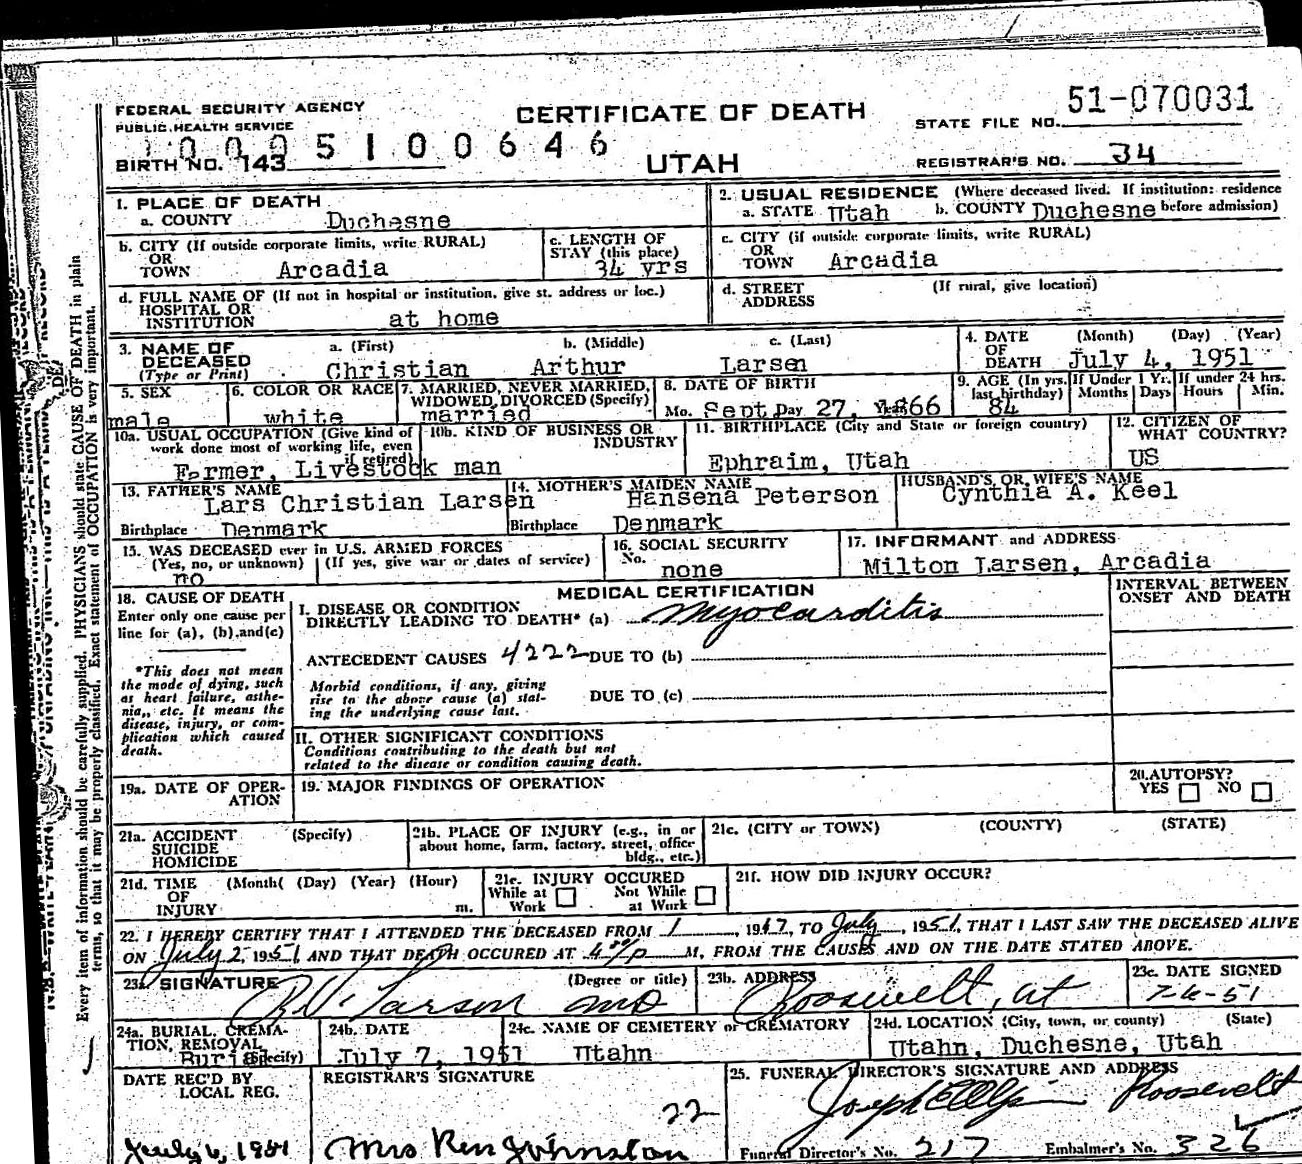 FEDERAL SECURITY AGENCY
PUBLIC HEALTH SERVICE
CERTIFICATE OF DEATH
STATE FILE NO. 51-070031
BIRTH NO. 143
5 1 0 0 6 4 6
UTAH
REGISTRAR'S NO. 34
Every item of information should be carefully supplied. PHYSICIANS should state CAUSE OF DEATH in plain
terms, so that it may be properly classified. Exact statement of OCCUPATION is very important.
1. PLACE OF DEATH
a. COUNTY Duchesne
2. USUAL RESIDENCE (Where deceased lived. If institution: residence
a. STATE Utah b. COUNTY Duchesne before admission)
b. CITY (If outside corporate limits, write RURAL)
OR
TOWN Arcadia
c. LENGTH OF
STAY (this place)
34 yrs
c. CITY (if outside corporate limits, write RURAL)
OR
TOWN Arcadia
d. FULL NAME OF (If not in hospital or institution, give st. address or loc.)
HOSPITAL OR
INSTITUTION at home
d. STREET (If rural, give location)
ADDRESS
3. NAME OF
DECEASED
(Type or Print)
a. (First) b. (Middle) c. (Last)
Christian Arthur Larsen
4. DATE (Month) (Day) (Year)
OF
DEATH July 4, 1951
5. SEX
male
6. COLOR OR RACE
white
7. MARRIED, NEVER MARRIED,
WIDOWED, DIVORCED (Specify)
married
8. DATE OF BIRTH
Mo. Sept Day 27, 1866
9. AGE (In yrs. last birthday)
84
If Under 1 Yr.
Months Days
If under 24 hrs.
Hours Min.
10a. USUAL OCCUPATION (Give kind of
work done most of working life, even
if retired)
Farmer, Livestock man
10b. KIND OF BUSINESS OR
INDUSTRY
11. BIRTHPLACE (City and State or foreign country)
Ephraim, Utah
12. CITIZEN OF
WHAT COUNTRY?
US
13. FATHER'S NAME
Lars Christian Larsen
Birthplace Denmark
14. MOTHER'S MAIDEN NAME
Hansena Peterson
Birthplace Denmark
HUSBAND'S OR WIFE'S NAME
Cynthia A. Keel
15. WAS DECEASED ever in U.S. ARMED FORCES
(Yes, no, or unknown) (If yes, give war or dates of service)
no
16. SOCIAL SECURITY
No.
none
17. INFORMANT and ADDRESS
Milton Larsen, Arcadia
18. CAUSE OF DEATH
Enter only one cause per
line for (a), (b), and (c)
*This does not mean
the mode of dying, such
as heart failure, asthe-
nia,, etc. It means the
disease, injury, or com-
plication which caused
death.
MEDICAL CERTIFICATION
I. DISEASE OR CONDITION
DIRECTLY LEADING TO DEATH* (a) Myocarditis
ANTECEDENT CAUSES 4222 DUE TO (b)
Morbid conditions, if any, giving
rise to the above cause (a) stat-
ing the underlying cause last.
DUE TO (c)
II. OTHER SIGNIFICANT CONDITIONS
Conditions contributing to the death but not
related to the disease or condition causing death.
INTERVAL BETWEEN
ONSET AND DEATH
19a. DATE OF OPER-
ATION
19. MAJOR FINDINGS OF OPERATION
20. AUTOPSY?
YES NO
21a. ACCIDENT (Specify)
SUICIDE
HOMICIDE
21b. PLACE OF INJURY (e.g., in or
about home, farm, factory, street, office
bldg., etc.)
21c. (CITY or TOWN) (COUNTY) (STATE)
21d. TIME (Month( (Day) (Year) (Hour)
OF
INJURY m.
21e. INJURY OCCURED
While at Work Not While at Work
21f. HOW DID INJURY OCCUR?
22. I HEREBY CERTIFY THAT I ATTENDED THE DECEASED FROM 1, 1947, TO July, 1951, THAT I LAST SAW THE DECEASED ALIVE
ON July 2, 1951 AND THAT DEATH OCCURED AT 4 00/P M, FROM THE CAUSES AND ON THE DATE STATED ABOVE.
23a. SIGNATURE (Degree or title)
Larson MD
23b. ADDRESS
Roosevelt, Ut
23c. DATE SIGNED
7-6-51
24a. BURIAL, CREMA-
TION, REMOVAL
(Specify)
Burial
24b. DATE
July 7, 1951
24c. NAME OF CEMETERY or CREMATORY
Utahn
24d. LOCATION (City, town, or county) (State)
Utahn, Duchesne, Utah
DATE REC'D BY
LOCAL REG.
July 6, 1951
REGISTRAR'S SIGNATURE
22
Mrs Ren Johnston
25. FUNERAL DIRECTOR'S SIGNATURE AND ADDRESS
Roosevelt
Funeral Director's No. 217 Embalmer's No. 326